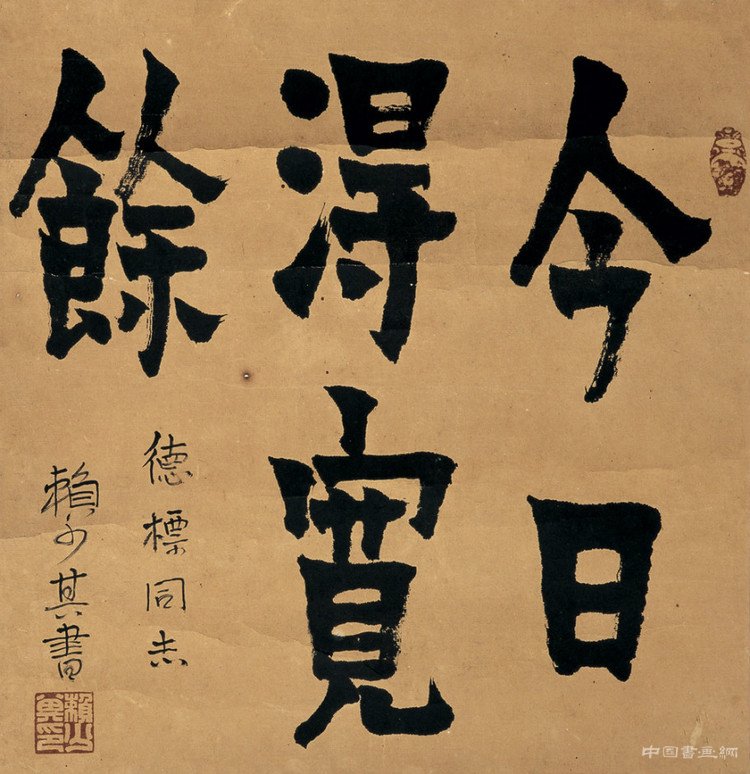 今日
得寬
餘
德標同志
賴少其書
賴少其印
中国書画網